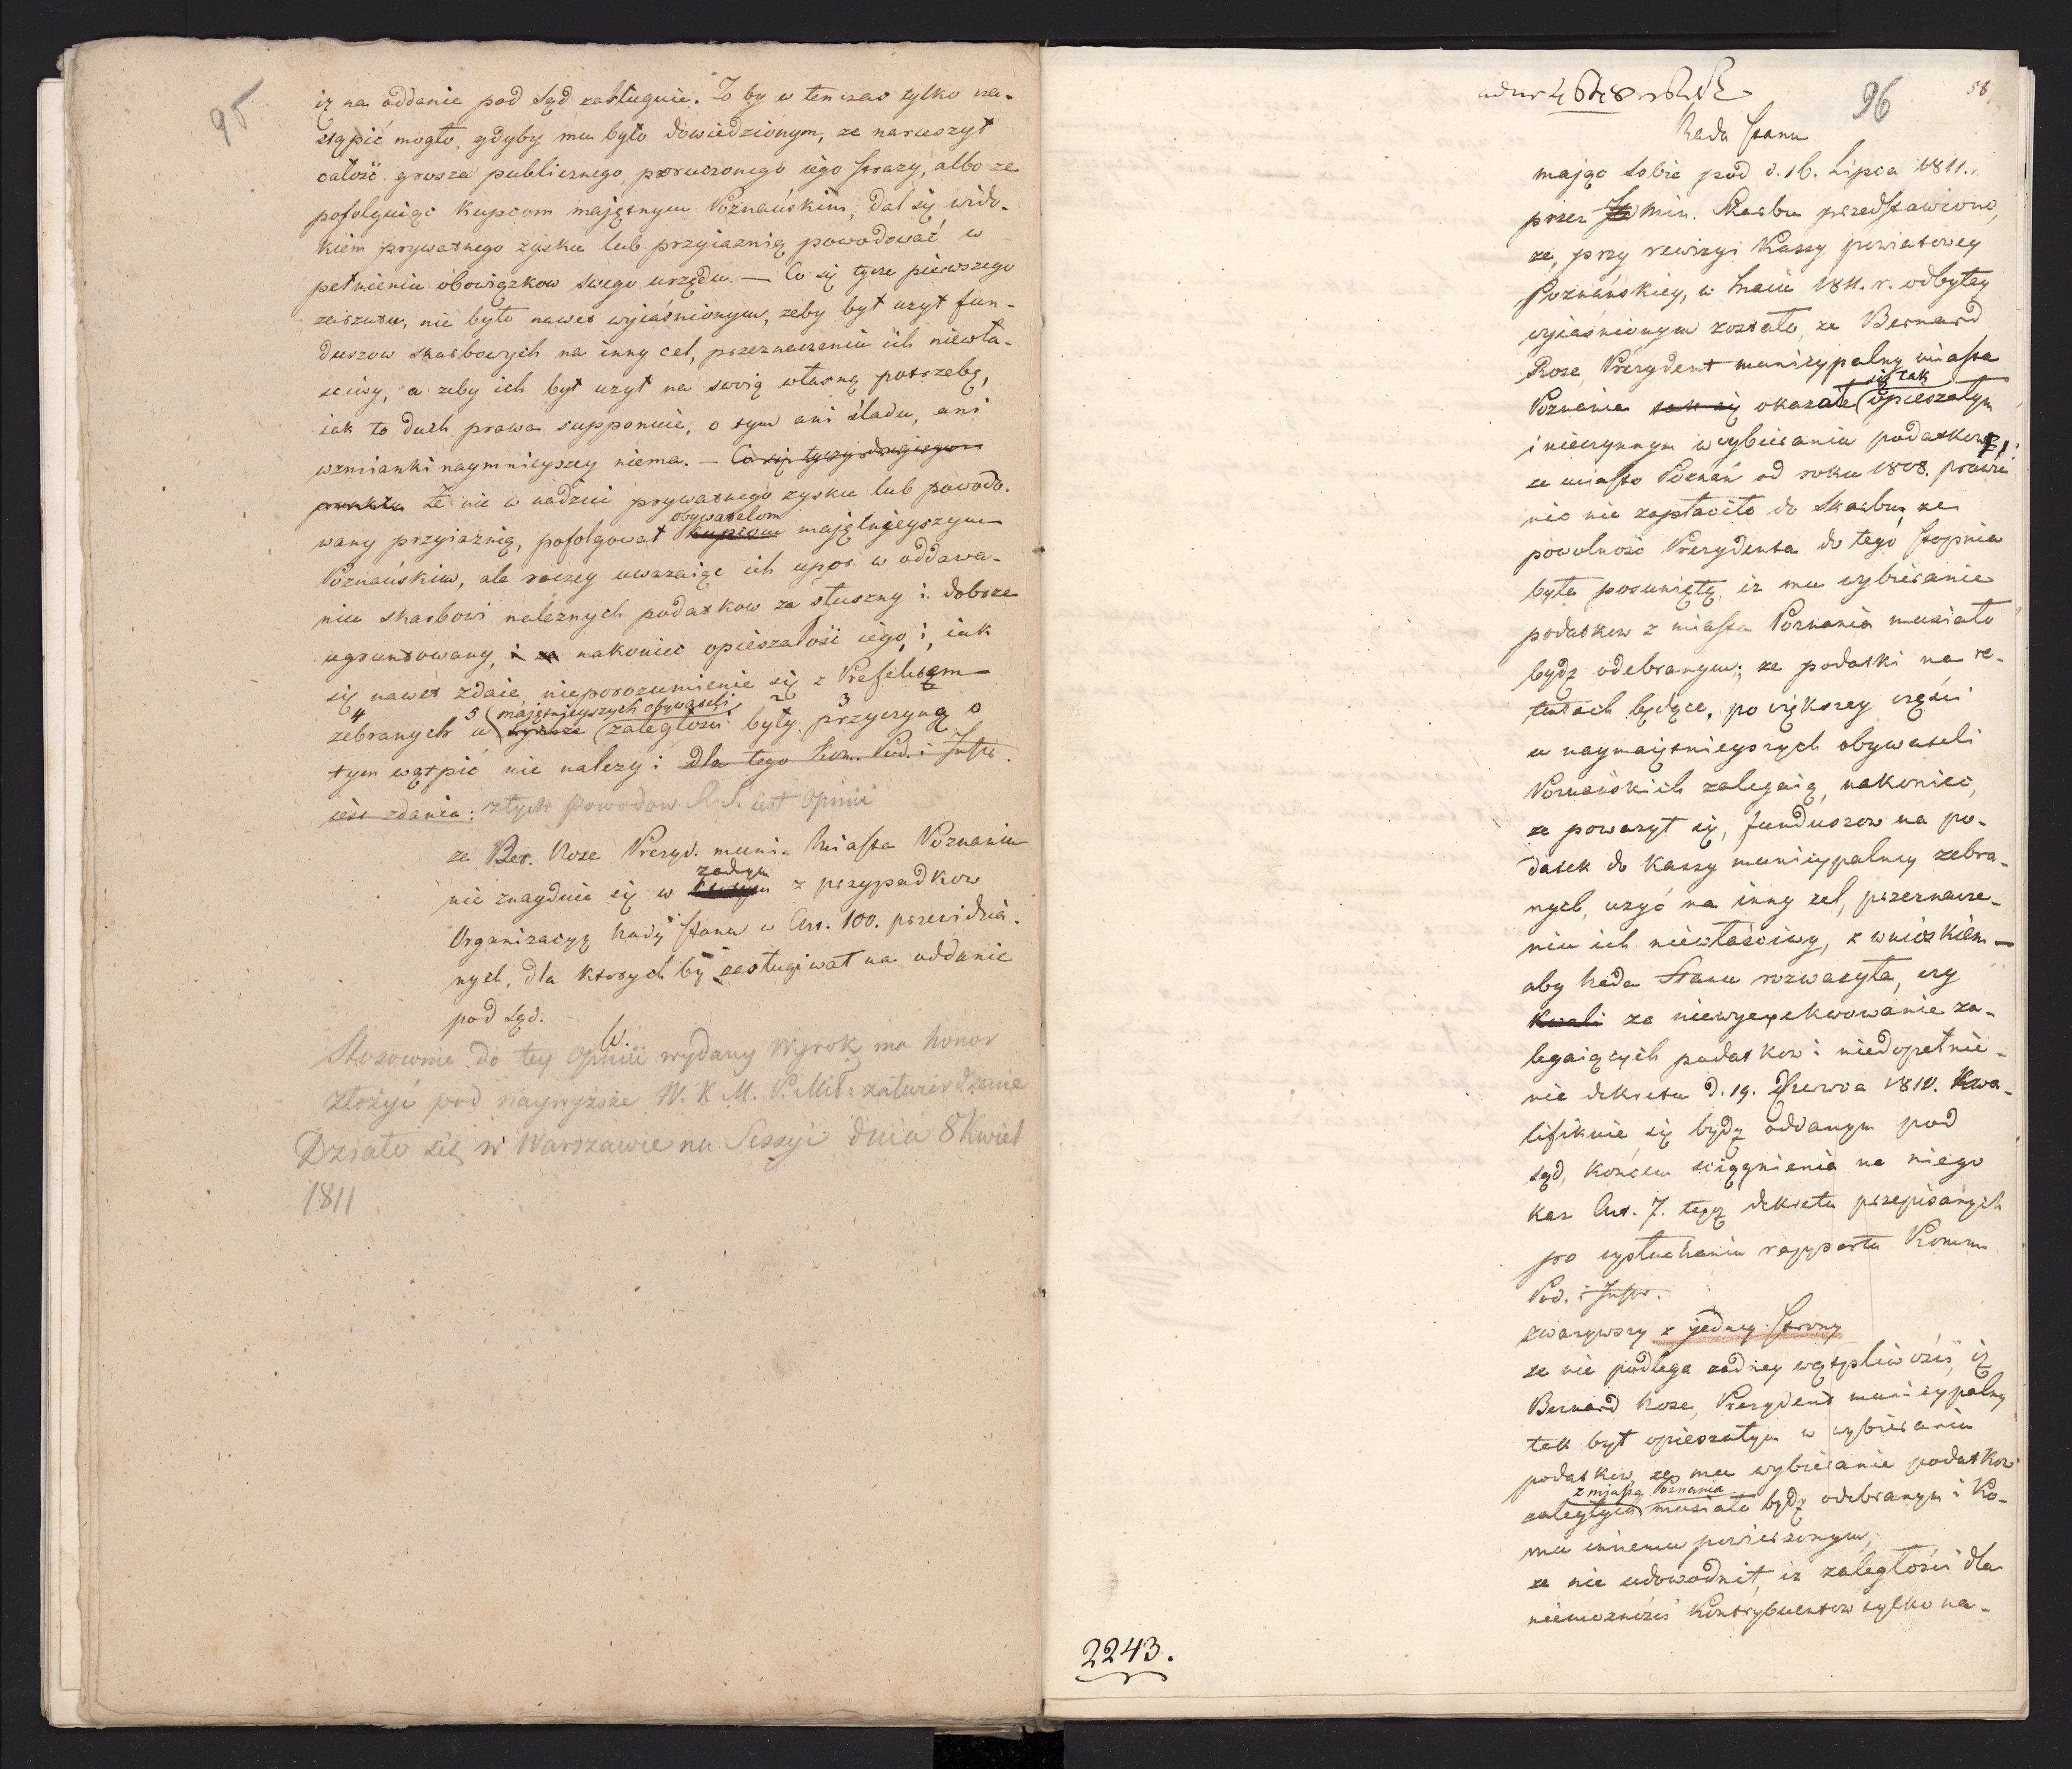 95
iż na oddanie pod sąd zasługuie. To by w tenczas tylko na-
stąpić mogło, gdyby mu było dowiedzionym, ze naruszył
całość grosza publicznego, poruczonego iego straży, albo ze
pofolguiąc kupcom majętnym Poznańskim, dał się wido-
kiem prywatnego zysku lub przyiaznią powodować w
pełnieniu obowiązkow swego urzędu. — Co się tycze pierwszego
zarzutu, nie było nawet wyiaśnionym, zeby był uzył fun-
duszow skarbowych na inny cel, przeznaczeniu ich niewła-
sciwy, a zeby ich był uzył na swoią własną potrzebę,
iak to duch prawa supponuie, o tym ani śladu, ani
wzmianki naymnieyszey niema. — Co się tyczy drugiego
punktu Ze nie w nadziei prywatnego zysku lub powodo-
obywatelom
wany przyiaznią, pofolgował kupcom majętnieyszym
Poznańskim, ale raczey uwazaiąc ich upor w oddawa-
niu skarbowi naleznych podatkow za słuszny i dobrze
ugruntowany, i ze nakoniec opieszałość iego, i, iak
się nawet zdaie nieporozumienie się z Prefektem
4 5 majętnieyszych obywateli 2 3
zebranych u zaległości były przyczyną o
tym wątpić nie nalezy: Dla tego Kom. Pod. i Instr.
iest zdania: z tych powodow R. S. iest Opinii
ze Ber. Roze Prezyd. muni. Miasta Poznania
zadnym
nie znayduie się w z przypadkow
Organizacyą Rady Stanu w Art. 100. przewidzia-
nych, dla ktorych by zasługiwał na oddanie
pod sąd.
Stosownie do tey Opinii wydany Wyrok ma honor
złożyć pod naywyższe W. K. M. P. Mił: zatwierdzenie
Działo się w Warszawie na Sessyi dnia 8 Kwiet
1811
96
58
Rada Stanu
mając sobie pod d. 16. Lipca 1811. r.
przez Min. Skarbu przedstawiono,
ze, przy rewizyi Kassy powiatowey
Poznańskiey, w Maiu 1811. r. odbytey
wyiaśnionym zostało, ze Bernard
Roze, Prezydent municypalny miasta
się tak
Poznania tak się okazał opieszałym
i nieczynnym w wybieraniu podatkow,
ze miasto Poznań od roku 1808. prawie
nic nie zapłaciło do Skarbu, ze
powolność Prezydenta do tego stopnia
była posunięta, iz mu wybieranie
podatkow z miasta Poznania musiało
bydz odebranym; ze podatki na re-
tentach będące, po większey części
u naymaiętnieyszych obywateli
Poznańskich zalegaią, nakoniec,
ze powazył się, funduszow na po-
datek do kassy municypalney zebra-
nych, uzyć na inny cel, przeznacze-
niu ich niewłaściwy, z wnioskiem —
aby Rada Stanu rozwazyła, czy
kwali za niewyexekwowanie za-
legaiących podatkow i niedopełnie-
nie dekretu d. 19. Czerwca 1810. kwa-
lifikuie się bydz oddanym pod
sąd, końcem sciągnienia na niego
kar Art. 7. tegoż dekretu przepisanych
po wysłuchaniu rapportu Komm
Pod. i Instr.
zwazywszy z jedney strony
ze nie podlega zadney wątpliwości, iz
Bernard Roze, Prezydent municypalny
tak był opieszałym w wybieraniu
podatkow, ze mu wybieranie podatkow
z miasta Poznania
zaległych musiało bydz odebranym i Ko-
mu innemu powierzonym;
ze nie udowodnił, iz zaległości dla
niemozności Kontrybuentow tylko na-
2243.